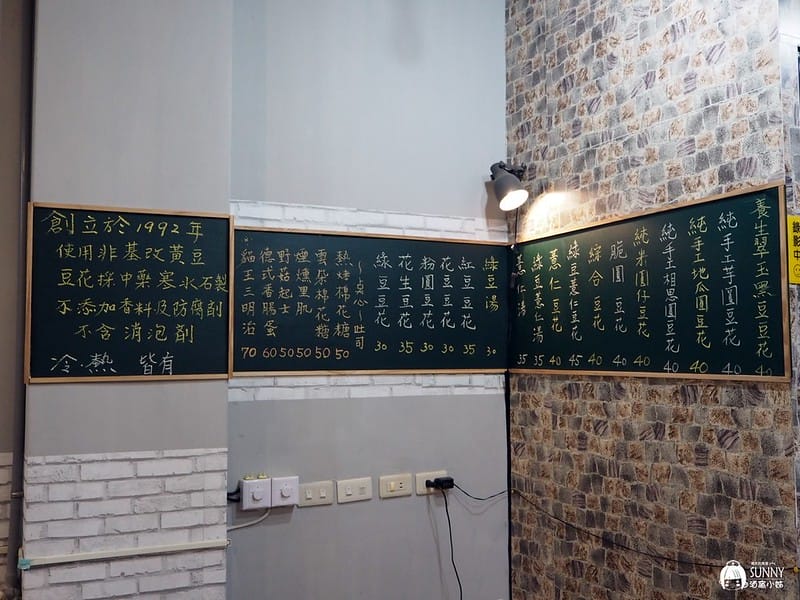 創立於1992年
使用非基改黃豆
豆花採中藥寒水石製
不添加香料及防腐劑
不含消泡劑
冷.熱 皆有
養生翠玉黑豆豆花 40
純手工芋圓豆花 40
純手工地瓜圓豆花 40
純手工相思圓豆花 40
純米圓仔豆花 40
脆圓豆花 40
綜合豆花 40
綠豆薏仁豆花 45
薏仁豆花 40
綠豆薏仁湯 35
薏仁湯 35
綠豆湯 30
紅豆豆花 35
花豆豆花 30
粉圓豆花 30
花生豆花 35
綠豆豆花 30
~點心~吐司
熱烤棉花糖 50
雲朵棉花糖 50
煙燻里肌 50
野菇起士 50
德式香腸蛋 60
貓王三明治 70
錄影中
SUNNY